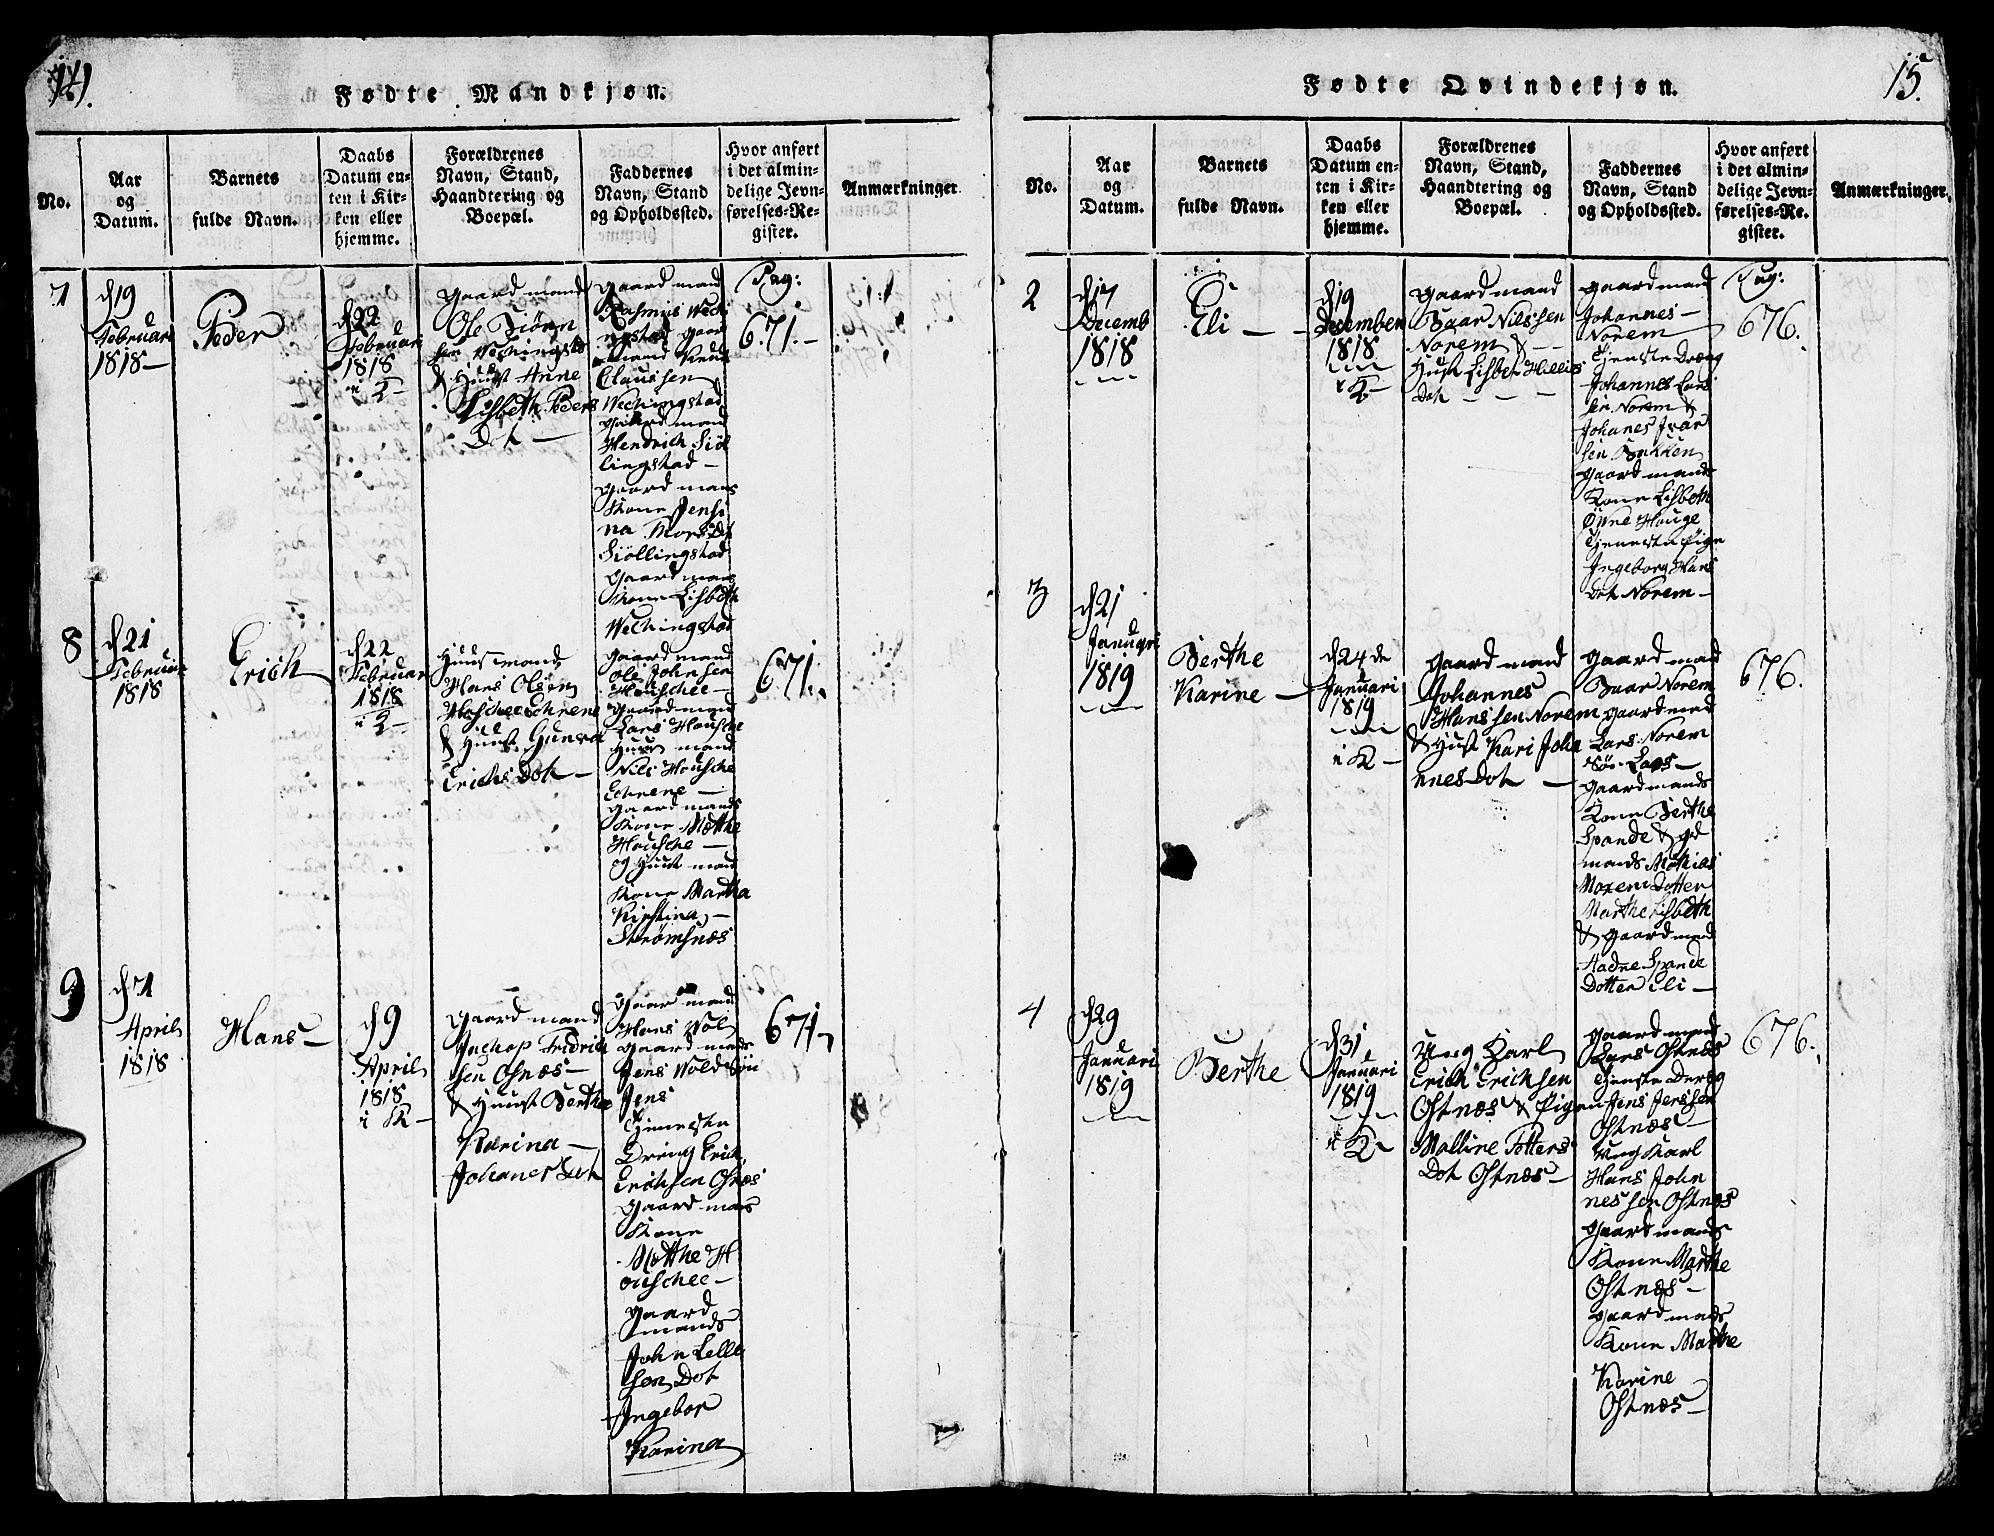 14.
Fødte Mandkjøn.
No.
Aar
og
Datum.
Barnets
fulde Navn.
Daabs
Datum en-
ten i Kir-
ken eller
hjemme.
Forældrenes
Navn, Stand,
Haandtering og
Boepæl.
Faddernes
Navn, Stand
og Opholdssted.
Hvor anført
i det almin-
delige Jevn-
førelses-Re-
gister.
Anmærkninger.
7
d 19
Februar
1818
Peder
d 22
Februar
1818
i K
Gaardmand
Ole Biørn
sen Wechingsta
& Hust Anne
Lisbeth Peders
Dot
Gaardmand
Rasmus Wechi
ngstad gaar
mand Knud
Claussen
Wechingstad
Gaardmand
Hendrich Siöl
lingstad
Gaardmans
Kone Jensi
na Mons Dt
Siöllingstad
Gaardmans
Kone Lisbeth
Wechingstad
Pag:
671.
8
d 21
Februar
1818
Erich
d 22
Februar
1818
i K
Huusmand
Hans Olsen
Hoschee Echrene
& Huust Gunva
Erichs Dot
Gaardmand
Ole Johnsen
Houschee
Gaardmand
Lars Housche
Huusmand
Nils Housche
Echrene
Gaardmands
Kone Mette
Housche
og Huusmand
Kone Martha
Kirstina
Strømsnæs
671.
9
d 7
April
1818
Hans
d 9
April
1818
i K
Gaardmand
Jachop Fridrich
sen Osnæs
& Huust Berthe
Karina
Johanes Dot
Gaarmand
Hans Vol
Gaardmands
Jens Vold Søn
Jens
Tjeneste
Dreng Erich
Erichsen Osnæs
Gaardmans
Kone
Mette H
ouschee
Gaard
mands
John Lelle
sen Dot
Ingebor
Karina
671
15.
Fødte Qvindekjøn.
No.
Aar
og
Datum.
Barnets
fulde Navn.
Daabs
Datum en-
ten i Kir-
ken eller
hjemme.
Forældrenes
Navn, Stand,
Haandtering og
Boepæl.
Faddernes
Navn, Stand
og Opholdssted.
Hvor anført
i det almin-
delige Jevn-
førelses-Re-
gister.
Anmærkninger.
2
d 17
Decemb
1818
Eli
d 19
December
1818
i K
Gaardmand
Baar Nilssen
Norem &
Hust Lisbet Hellies
Dot
Gaardmand
Johannes
Norem
Tjenste Dræng
Johannes Lars
sen Norem &
Johanes Ivar
sen Bukken
Gaardmands
Kone Lisbeth
Øvne Houge
Tjeneste Pige
Ingeborg Hans
Dot Norem
Pag:
676.
3
d 21
Januari
1819
Berthe
Karine
d 24de
Januari
1819
i K
Gaardmand
Johannes
Hanssen Norem
& Hust Kari Joha
nnes Dot
Gaardmand
Baar Norem
Gaardmand
Lars Norem
Søn Lars
Gaardmands
Kone Berthe
Spande & gd
mands Mathias
Norem Dotter
Marthe Lisbeth
& Gaardmand
Aadne Spande
Dotter Eli
676.
4
d 29
Januari
1819
Berthe
d 31
Januari
1819
i K
Ung Karl
Erich Erichsen
Ostnæs & Pigen
Malline Petters
Dot Ostnæs
Gaardmand
Lars Ostnæs
Tjenste Dreng
Jens Jenssen
Ostnæs
Ung Karl
Hans Johan
nessen Ostnæs
Gaardmands
Kone Marthe
Ostnæs
Gaardmands
Kone Marthe
Karine
Ostnæs
676.